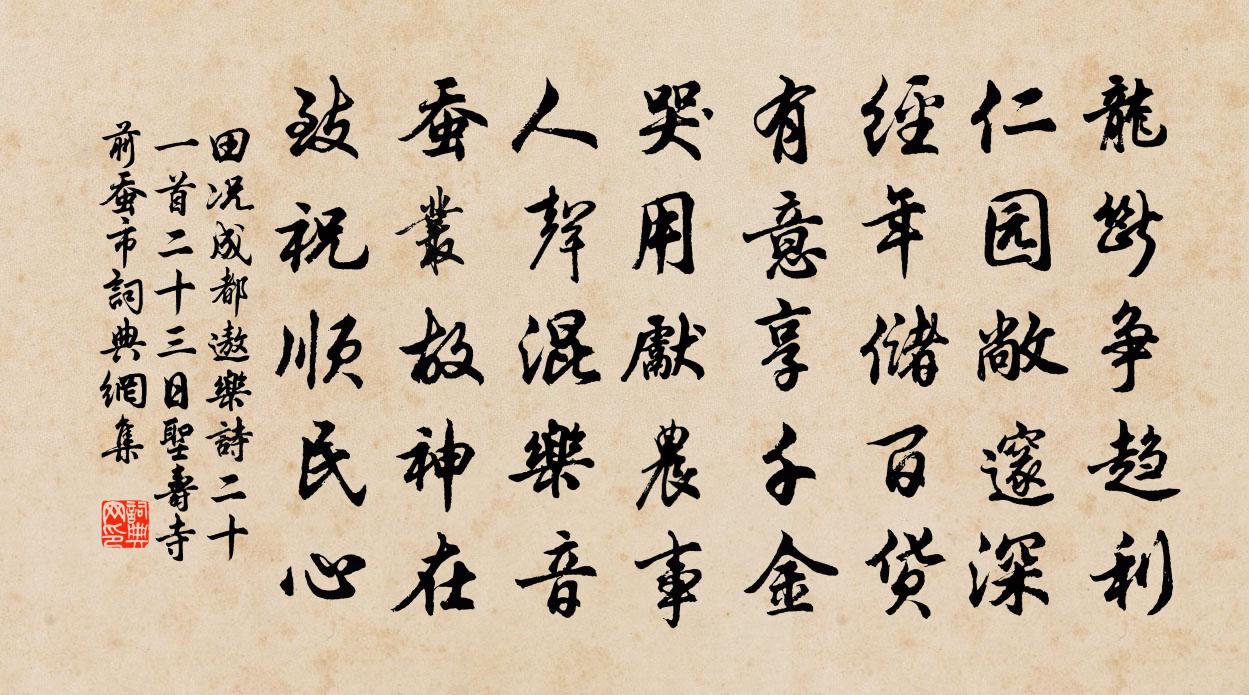 龍斷争趋利
仁园敞邃深
經年儲百货
有意享千金
哭用獻農事
人聲混樂音
蚕叢故神在
致祝順民心
田况成都遨樂詩二十
一首二十三日聖壽寺
前蚕市詞典網集
詞典
网印